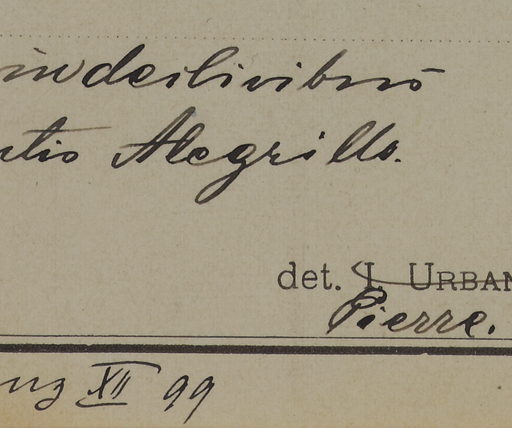 in declivibus
ntis Alegrillo.
det. I. URBAN
Pierre.
XII 99